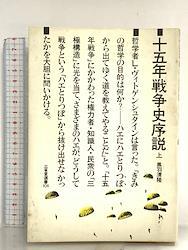 十五年戦争史序説
上
黒羽清隆
哲学者L・ヴィトゲンシュタインは言った。「きみ
の哲学の目的は何か?——ハエにハエとりつぼ
から出てゆく道を教えてやることだ」と。「十五
年戦争」にかかわった権力者・知識人・民衆の「三
極構造」に光を当て、さまざまのハエがどうして
戦争という「ハエとりつぼ」から抜け出せなかっ
たかを大胆に問いかける。
三省堂選書